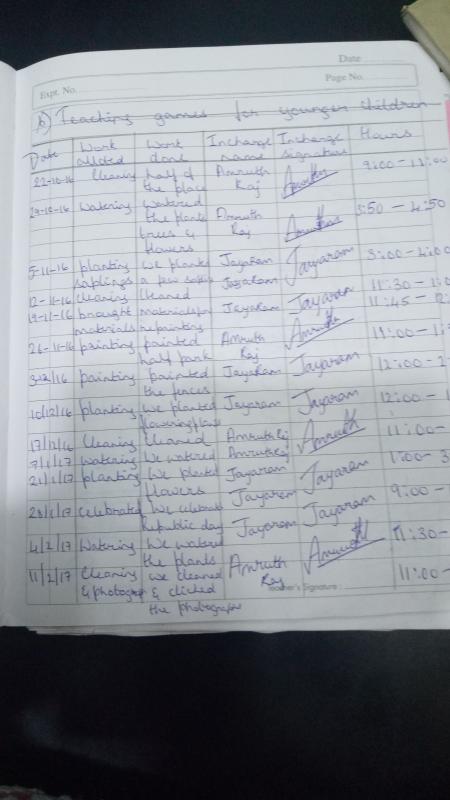 Date
Expt. No.
Page No.
b) Teaching games for younger children
Date Work alloted Work done Incharge name Incharge signature Hours
22-10-16 Cleaning half of the place Amruth Raj Amruth 9:00 - 11:00
29-10-16 Watering watered the plants trees & flowers Amruth Raj Amruth 3:50 - 4:50
5-11-16 planting saplings we planted a few Jayaram Jayaram 3:00 - 4:00
12-11-16 cleaning cleaned Jayaram
19-11-16 brought materials materials for painting Jayaram Jayaram 11:30 -
11:45 - 12:
26-11-16 painting painted half park Amruth Raj Amruth 11:00 -
3/12/16 painting painted the fences Jayaram Jayaram 12:00 -
10/12/16 planting we planted flowering plants Jayaram Jayaram 12:00 -
17/12/16 Cleaning cleaned Amruth Raj Amruth 11:00 -
7/1/17 Watering We watered Amruth Raj
21/1/17 planting We planted flowers Jayaram Jayaram 1:00 - 3
28/1/17 celebrated We celebrated republic day Jayaram Jayaram 9:00 -
4/2/17 Watering We watered the plants Jayaram Jayaram 11:30 -
11/2/17 Cleaning & photograph we cleaned & clicked the photographs Amruth Raj Amruth 11:00 -
Teacher's Signature :